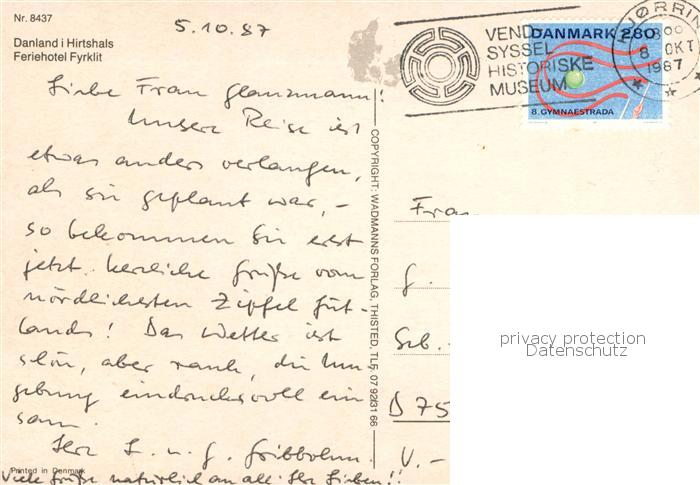 Nr. 8437
Danland i Hirtshals
Feriehotel Fyrklit
5.10.87
Liebe Frau Glanzmann!
Unsere Reise ist
etwas anders verlangen,
als sie geplant war, –
so bekommen Sie erst
jetzt herzliche Grüße vom
nördlichsten Zipfel Jüt-
lands! Das Wetter ist
schön, aber rauh, die Um
gebung eindrucksvoll ein
sam.
Ihr L. u. G.
Viele Grüße natürlich an all Ihr Lieben!!
Printed in Denmark
COPYRIGHT: WADMANNS FORLAG, THISTED, TLF. 07 92/31 66
VEND
SYSSEL
HISTORISKE
MUSEUM
HJØRRIN
8 OKT
1987
DANMARK 280
8. GYMNAESTRADA
Frau
G.
Seb.-
D 75
V.-
privacy protection
Datenschutz